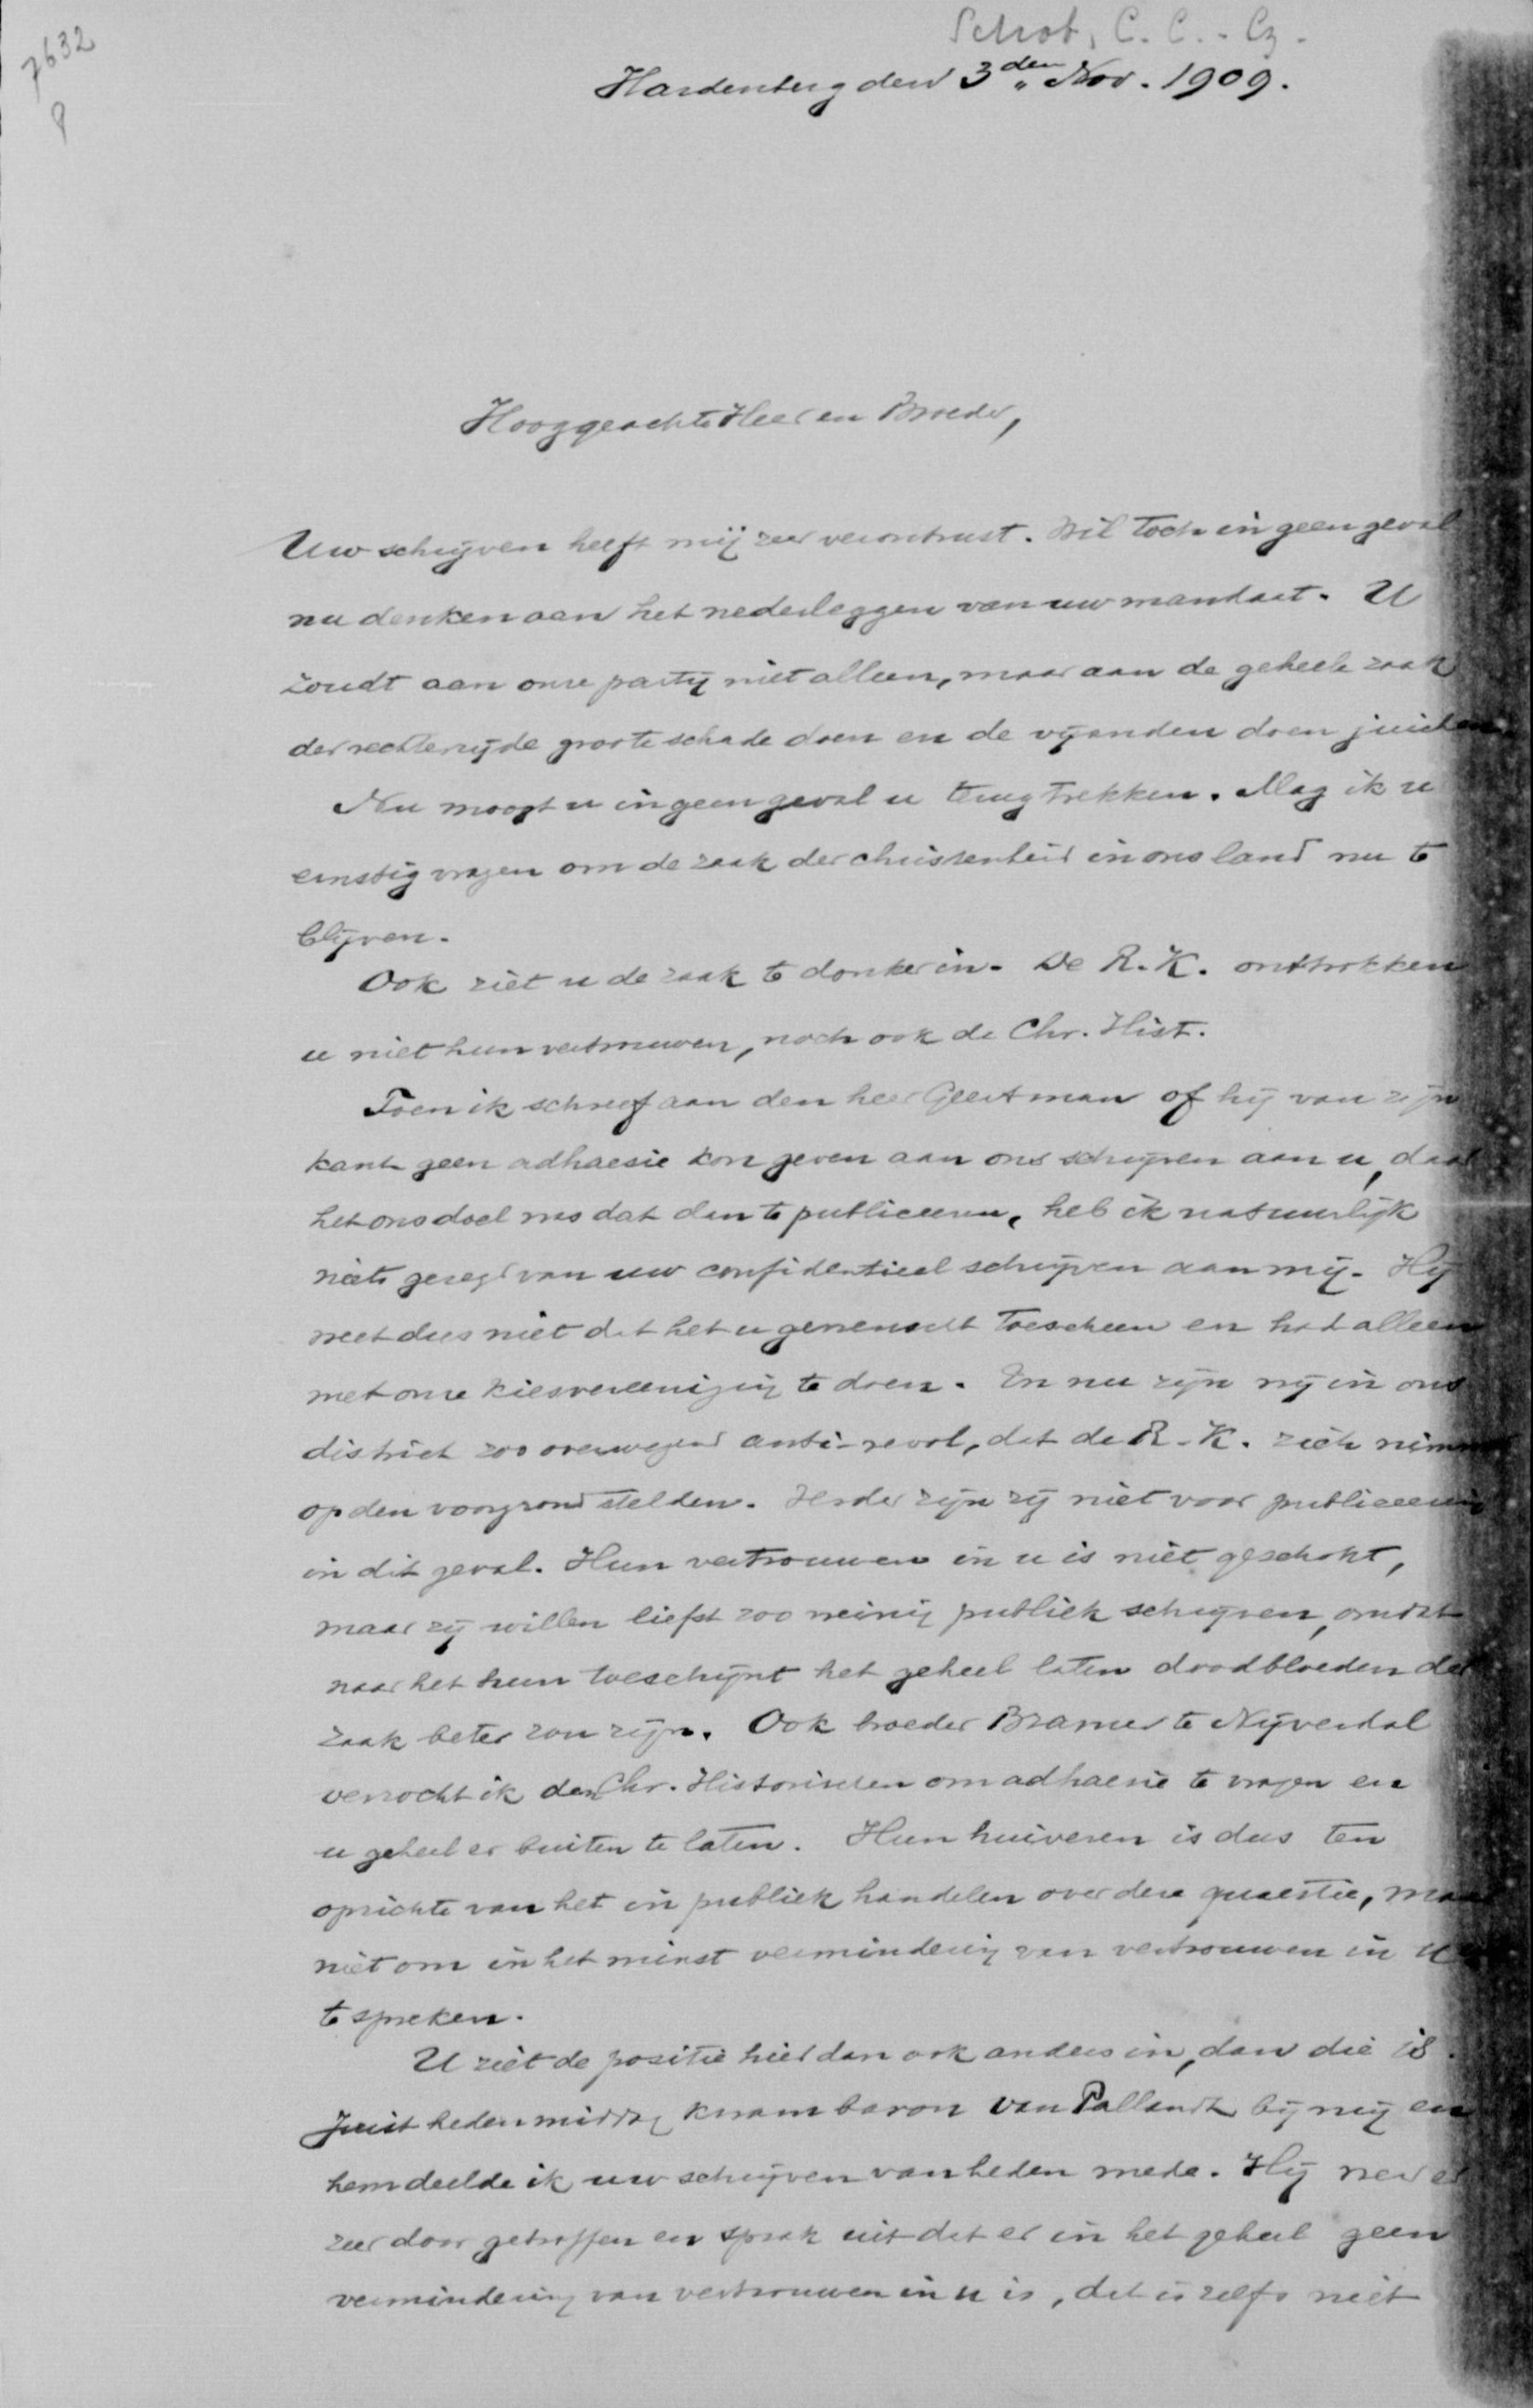 7632
8
Schot, C. C. - Cz.
Hardenberg den 3den Nov. 1909.
Hooggeachte Heer en Broeder,
Uw schrijven heeft mij zeer verontrust. Wil toch in geen geval
nu denken aan het nederleggen van uw mandaat. U
zoudt aan onze partij niet alleen, maar aan de geheele zaak
der rechterzijde groote schade doen en de vijanden doen juichen
Nu moogt u in geen geval u terugtrekken. Mag ik u
ernstig vragen om de zaak der christenheid in ons land nu te
blijven.
Ook ziet u de zaak te donker in. De R.K. onttrokken
u niet hun vertrouwen, noch ook de Chr. Hist.
Toen ik schreef aan den heer Geertman of hij van zijn
kant geen adhaesie kon geven aan ons schrijven aan u, daar
het ons doel was dat dan te publiceeren, heb ik natuurlijk
niets gezegd van uw confidentieel schrijven aan mij. Hij
weet dus niet dat het u gewenscht toescheen en had alleen
met onze kiesvereeniging te doen. En nu zijn wij in ons
district zoo overwegend anti-revol, dat de R.K. zich nimmer
op den voorgrond stelden. Verder zijn zij niet voor publiceering
in dit geval. Hun vertrouwen in u is niet geschokt,
maar zij willen liefst zoo weinig publiek schrijven, omdat
naar het hun toeschijnt het geheel laten doodbloeden der
zaak beter zou zijn. Ook broeder Bramer te Nijverdal
verzocht ik den Chr. Historischen om adhaesie te vragen en
u geheel er buiten te laten. Hun huiveren is dus ten
opzichte van het in publiek handelen over deze quaestie, maar
niet om in het minst vermindering van vertrouwen in u
te spreken.
U ziet de positie hier dan ook anders in, dan die is.
Juist heden middag kwam baron van Pallandt bij mij en
hem deelde ik uw schrijven van heden mede. Hij werd er
zeer door getroffen en sprak uit dat er in het geheel geen
vermindering van vertrouwen in u is, dat is zelfs niet